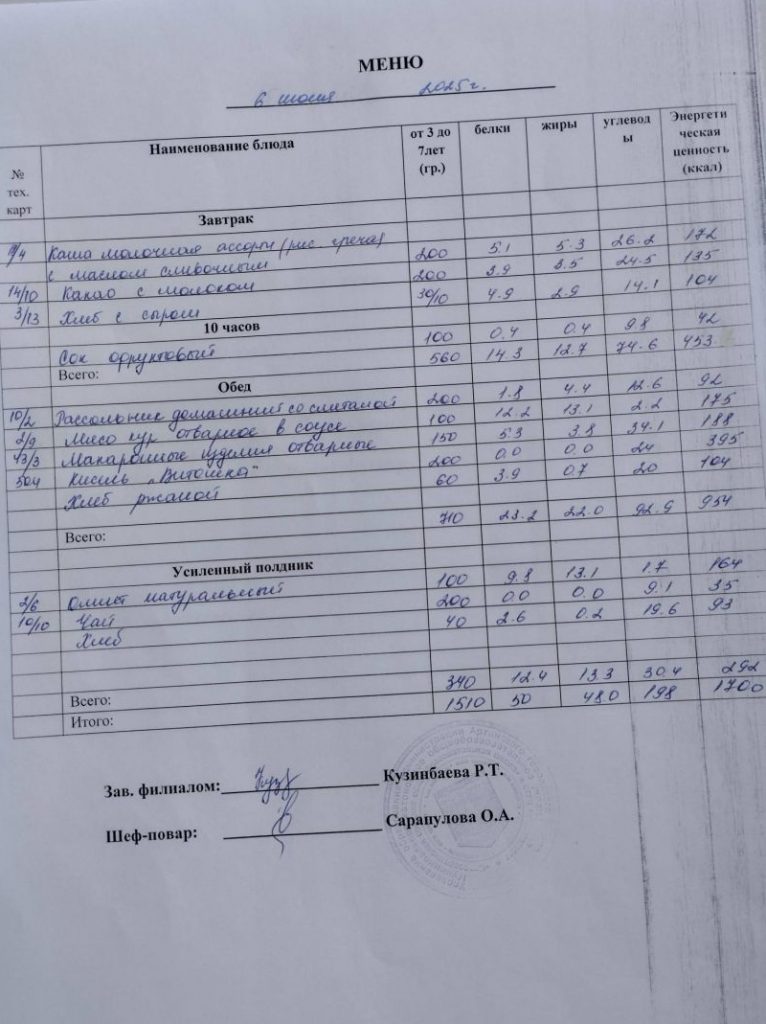 МЕНЮ
6 июня 2025г.
№ тех. карт | Наименование блюда | от 3 до 7лет (гр.) | белки | жиры | углеводы | Энергетическая ценность (ккал)
Завтрак
9/4 Каша молочная ассорти (рис греча) 200 5.1 5.3 26.2 172
с маслом сливочным
14/10 Какао с молоком 200 3.9 3.5 24.5 135
3/13 Хлеб с сыром 30/10 4.9 2.9 14.1 104
10 часов
Сок фруктовый 100 0.4 0.4 9.8 42
Всего: 560 14.3 12.7 74.6 453
Обед
10/2 Рассольник домашний со сметаной 200 1.8 4.4 12.6 92
2/9 Мясо кур отварное в соусе 100 12.2 13.1 2.2 175
43/3 Макаронные изделия отварные 150 5.3 3.8 34.1 188
504 Кисиль „Витошка" 200 0.0 0.0 24 395
Хлеб ржаной 60 3.9 0.7 20 104
Всего: 710 23.2 22.0 92.9 954
Усиленный полдник
2/6 Омлет натуральный 100 9.8 13.1 1.7 164
10/10 Чай 200 0.0 0.0 9.1 35
Хлеб 40 2.6 0.2 19.6 93
Всего: 340 12.4 13.3 30.4 292
Итого: 1510 50 48.0 198 1700
Зав. филиалом: Кузинбаева Р.Т.
Шеф-повар: Сарапулова О.А.